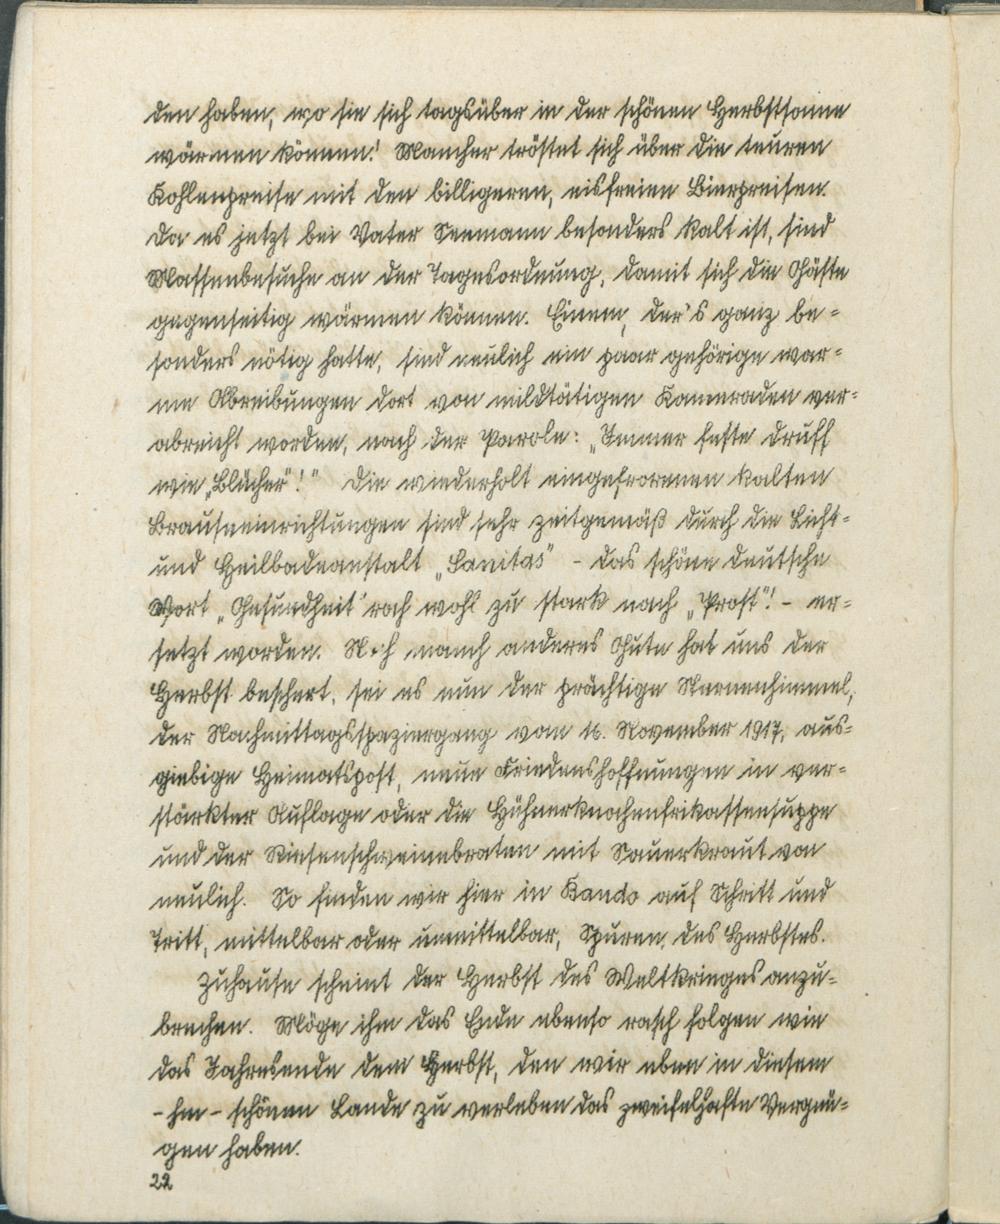 den haben, wo sie sich tagsüber in der schönen Herbstsonne
wärmen können! Mancher tröstet sich über die teuren
Kohlenpreise mit den billigeren, eisfreien Bierpreisen.
Da es jetzt bei Vater Seemann besonders kalt ist, sind
Massenbesuche an der Tagesordnung, damit sich die Gäste
gegenseitig wärmen können. Einem, der's ganz be-
sonders nötig hatte, sind neulich ein paar gehörige war-
me Abreibungen dort von mildtätigen Kameraden ver-
abreicht worden, nach der Parole: „Immer feste druff
wie „Blücher"!" Die wiederholt eingefrorenen kalten
Brauseeinrichtungen sind sehr zeitgemäß durch die Licht-
und Heilbadeanstalt „Sanitas" - das schöne deutsche
Wort „Gesundheit" roch wohl zu stark nach „Prost"! - er-
setzt worden. Noch manch anderes Gute hat uns der
Herbst beschert, sei es nun der prächtige Sternenhimmel,
der Nachmittagsspaziergang vom 16. November 1917, aus-
giebige Heimatspost, neue Friedenshoffnungen in ver-
stärkter Auflage oder die Hühnerknochenfrikasseesuppe
und der Riesenschweinebraten mit Sauerkraut von
neulich. So finden wir hier in Bando auf Schritt und
Tritt, mittelbar oder unmittelbar, Spuren des Herbstes.
Zuhause scheint der Herbst des Weltkrieges anzu-
brechen. Möge ihm das Ende ebenso rasch folgen wie
das Jahresende dem Herbst, den wir eben in diesem
- hm - schönen Lande zu verleben das zweifelhafte Vergnü-
gen haben.
22